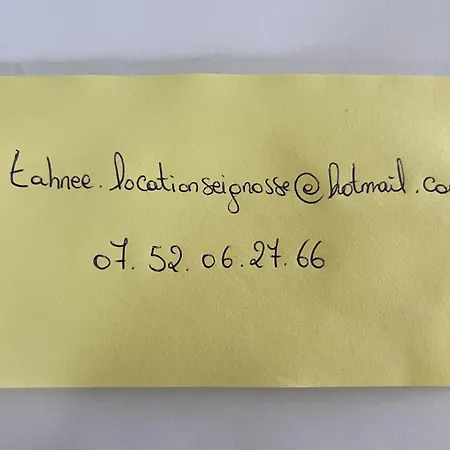 tahnee.locationseignosse@hotmail.co
07.52.06.27.66